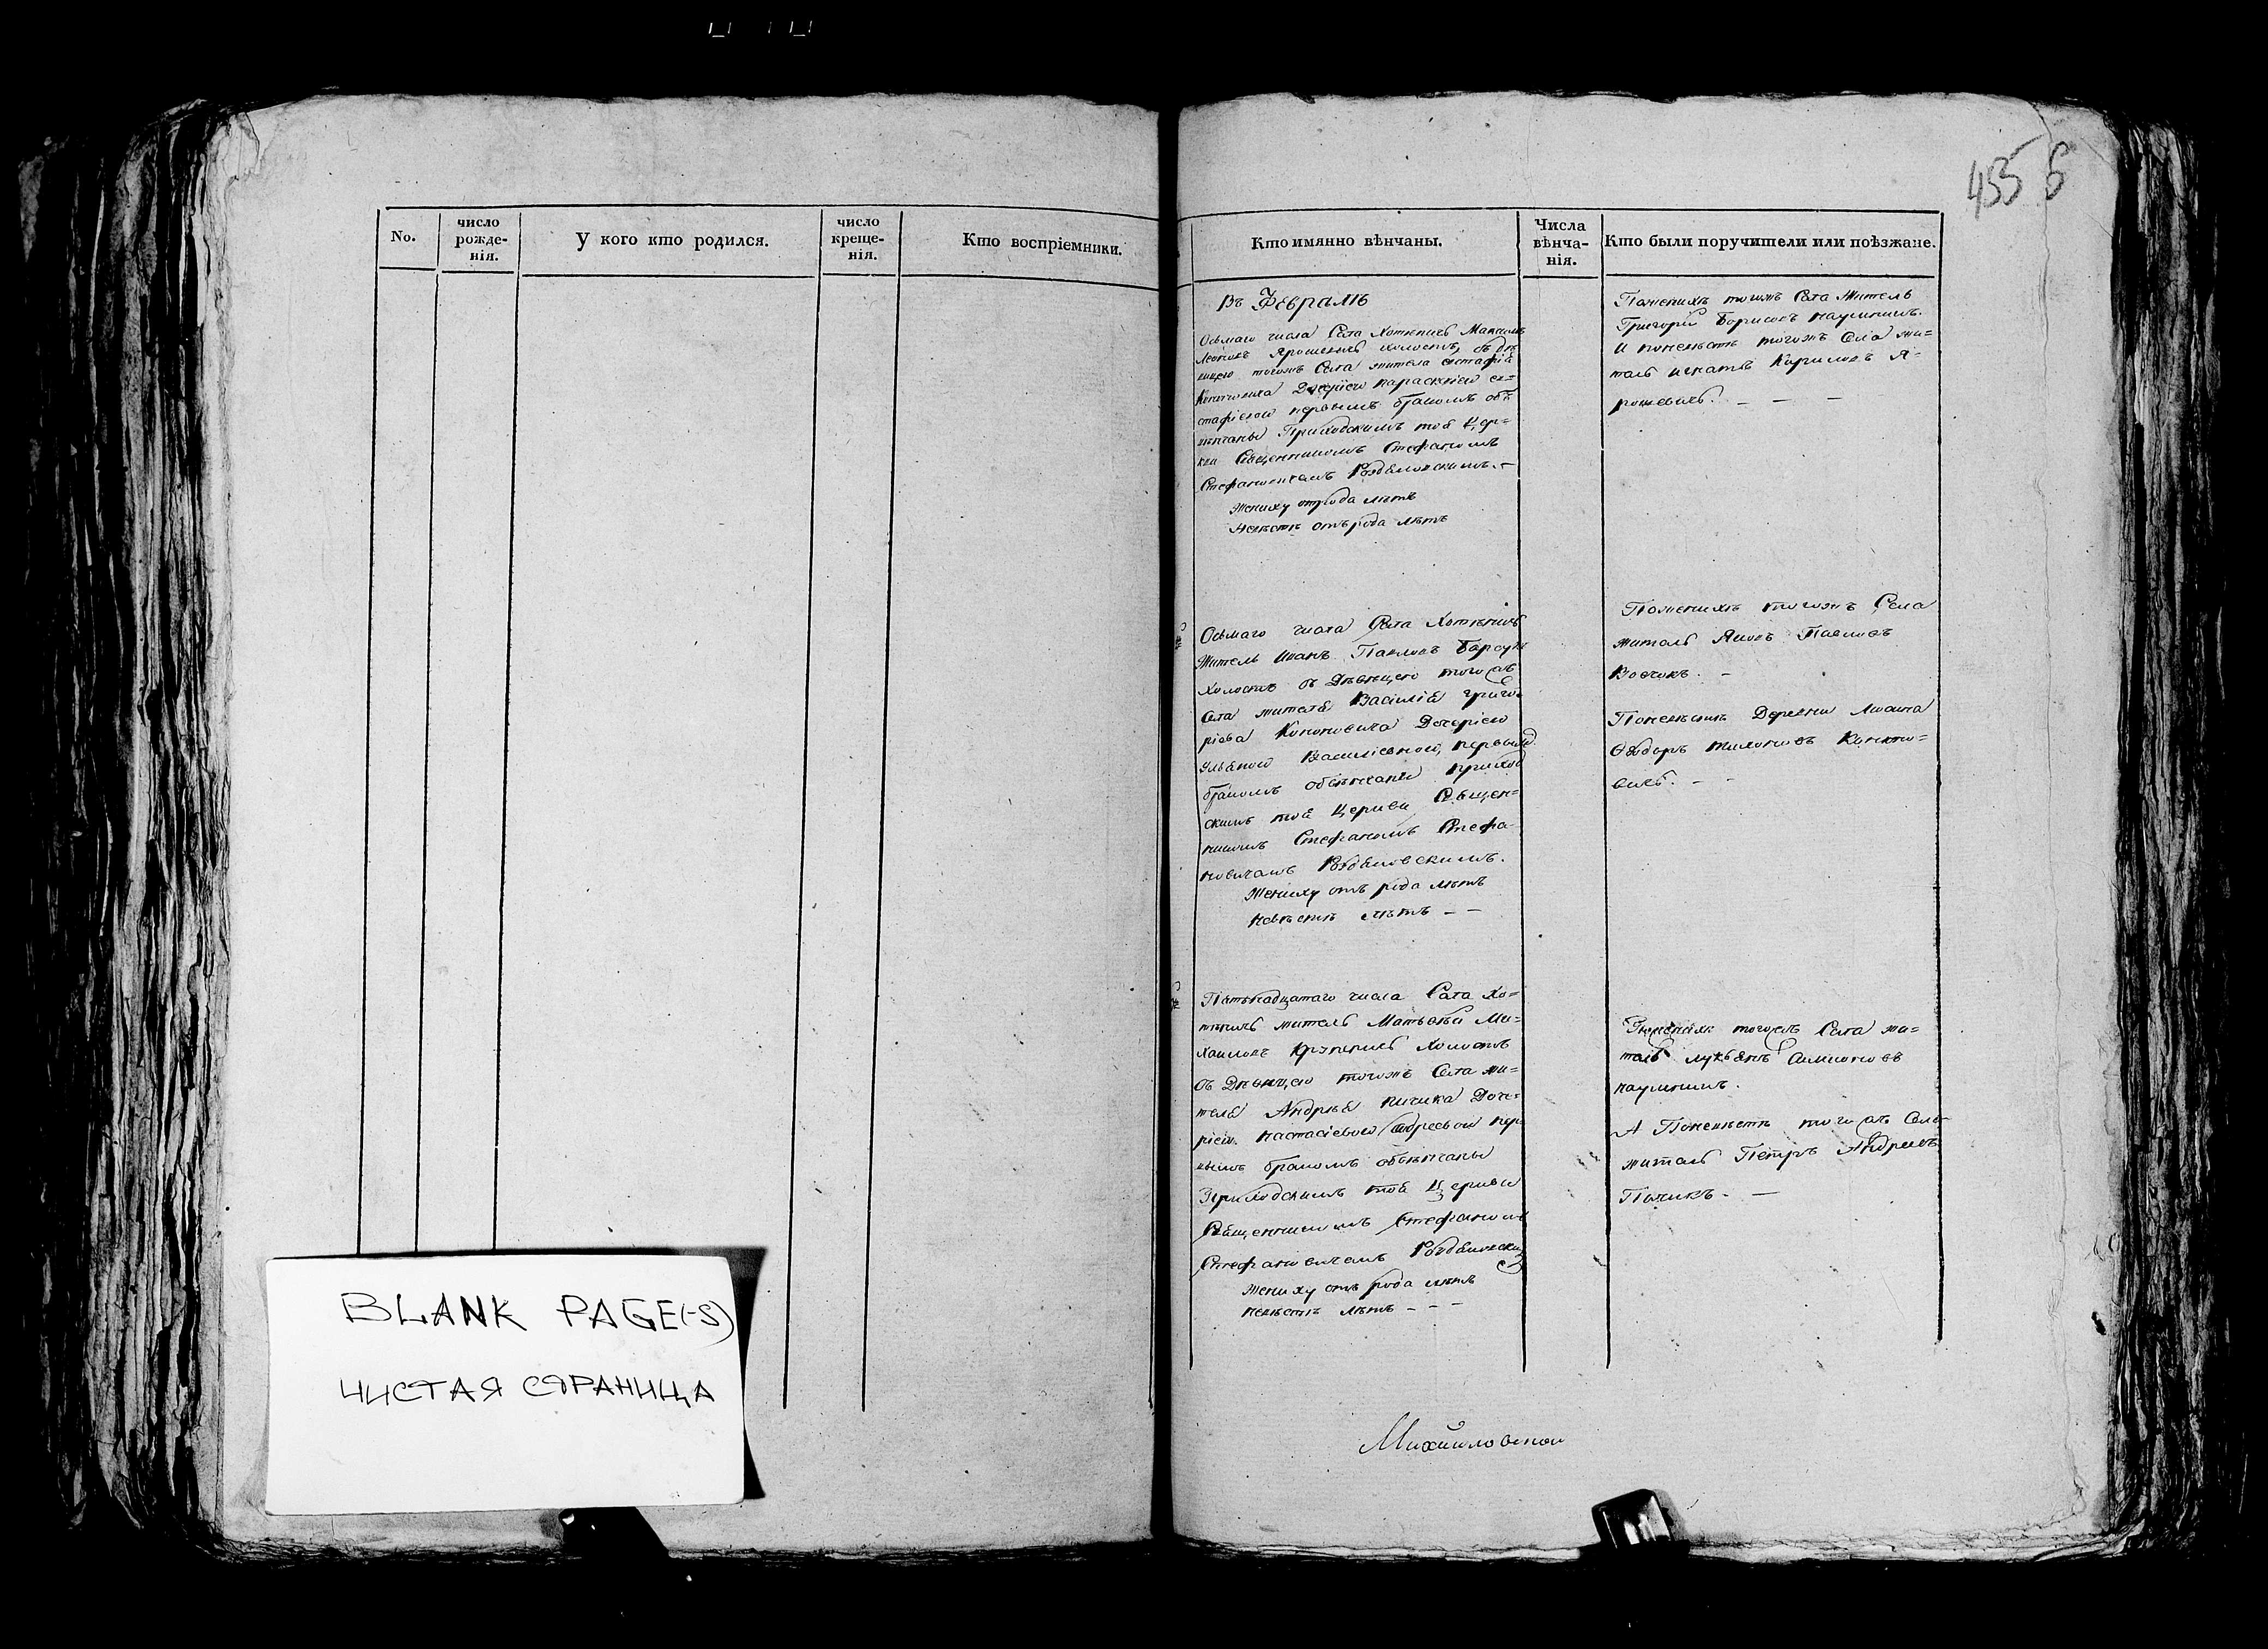 455 б
No.
число рожде-нія.
У кого кто родился.
число креще-нія.
Кто воспріемники.
Кто имянно вѣнчаны.
Числа вѣнча-нія.
Кто были поручители или поѣзжане.
Въ Февралѣ
Осьмаго числа Села Хотѣничь Максимъ
холостъ, съ дѣ
вицею тогожъ Села жителя
Дочерію Параскѣіею
первымъ бракомъ обѣ
вѣнчаны Приходскимъ той Цер=
кви Священникомъ Стефаномъ
Стефановичемъ
Жениху отрода лѣтъ
Невѣстѣ отъ рода лѣтъ
Поженихѣ тогожъ Села Житель
Григорій Борисовъ
И поневѣстѣ тогожъ Села жи=
тель Игнатъ Кириловъ Я=
рошевичь. — — —
Осьмаго числа Села Хотѣничь
Житель Иванъ Павловъ
Холостъ съ Дѣвицею тогожъ
Села жителя Василія Григо=
ріева Кононовича Дочерію
Ульяною Василіевною, первымъ
бракомъ обвѣнчаны приход
скимъ той Церкви Священ=
никомъ Стефаномъ Стефа=
новичемъ
Жениху отъ рода лѣтъ
невѣстѣ лѣтъ — —
Поженихѣ тогожъ Села
житель Яковъ Павловъ
Вовчокъ. —
Поневѣстѣ Деревни
Ѳедоръ Тихоновъ
Пятьнадцатаго числа Села Хо=
тѣничь житель Матвѣй Ми=
хаиловъ Холостъ
съ Дѣвицею тогожъ Села жи=
теля Андрѣя Доче=
рію Настасіевою Андреевой пер
вымъ бракомъ обвѣнчаны
Приходскимъ той Церкви
Священникомъ Стефаномъ
Стефановичемъ
Жениху отъ рода лѣтъ
невѣстѣ лѣтъ — — —
Поженихѣ тогожъ Села жи=
тель Лукьянъ
А Поневѣстѣ тогожъ Села
житель Петръ Андреевъ
Пичикъ. —
Михайловской
BLANK PAGE(-S)
ЧИСТАЯ СТРАНИЦА